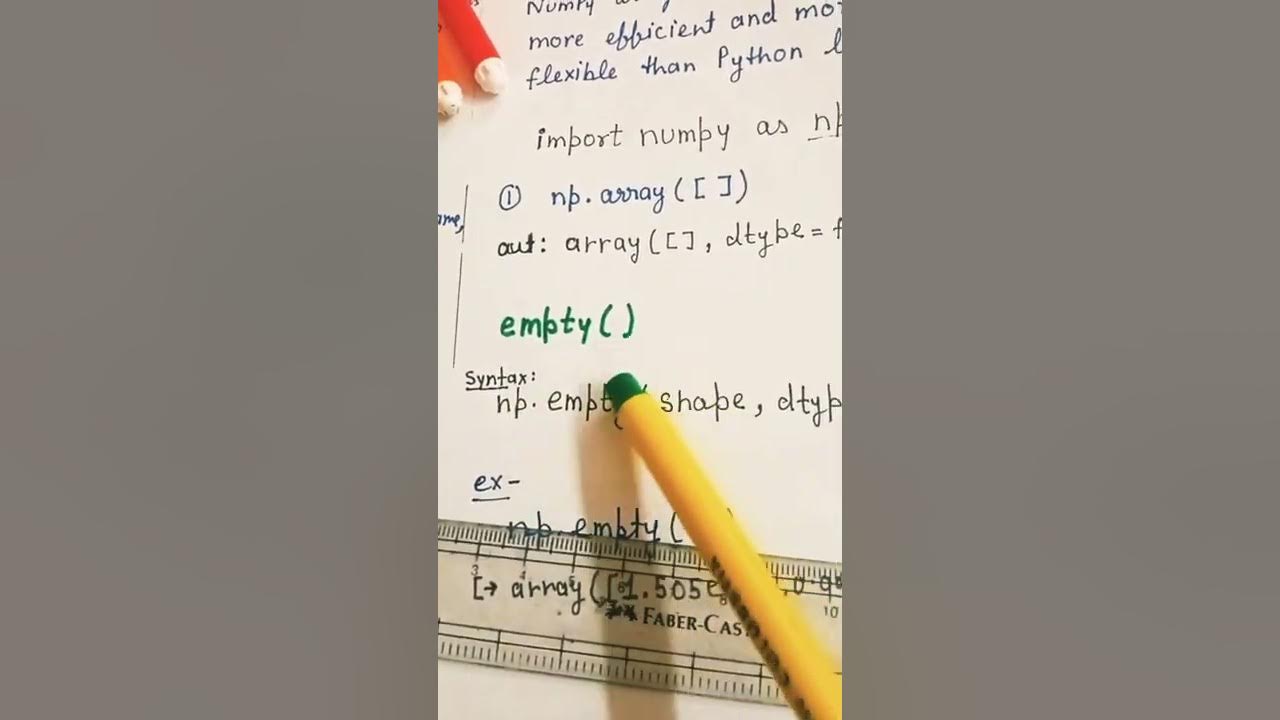 Numpy
more efficient and
flexible than Python
import numpy as np
① np.array([ ])
out: array([], dtype=
empty()
Syntax:
np. empty( shape, dtyp
ex-
np. empty(
[→ array([1.505
3
10
FABER-CAS